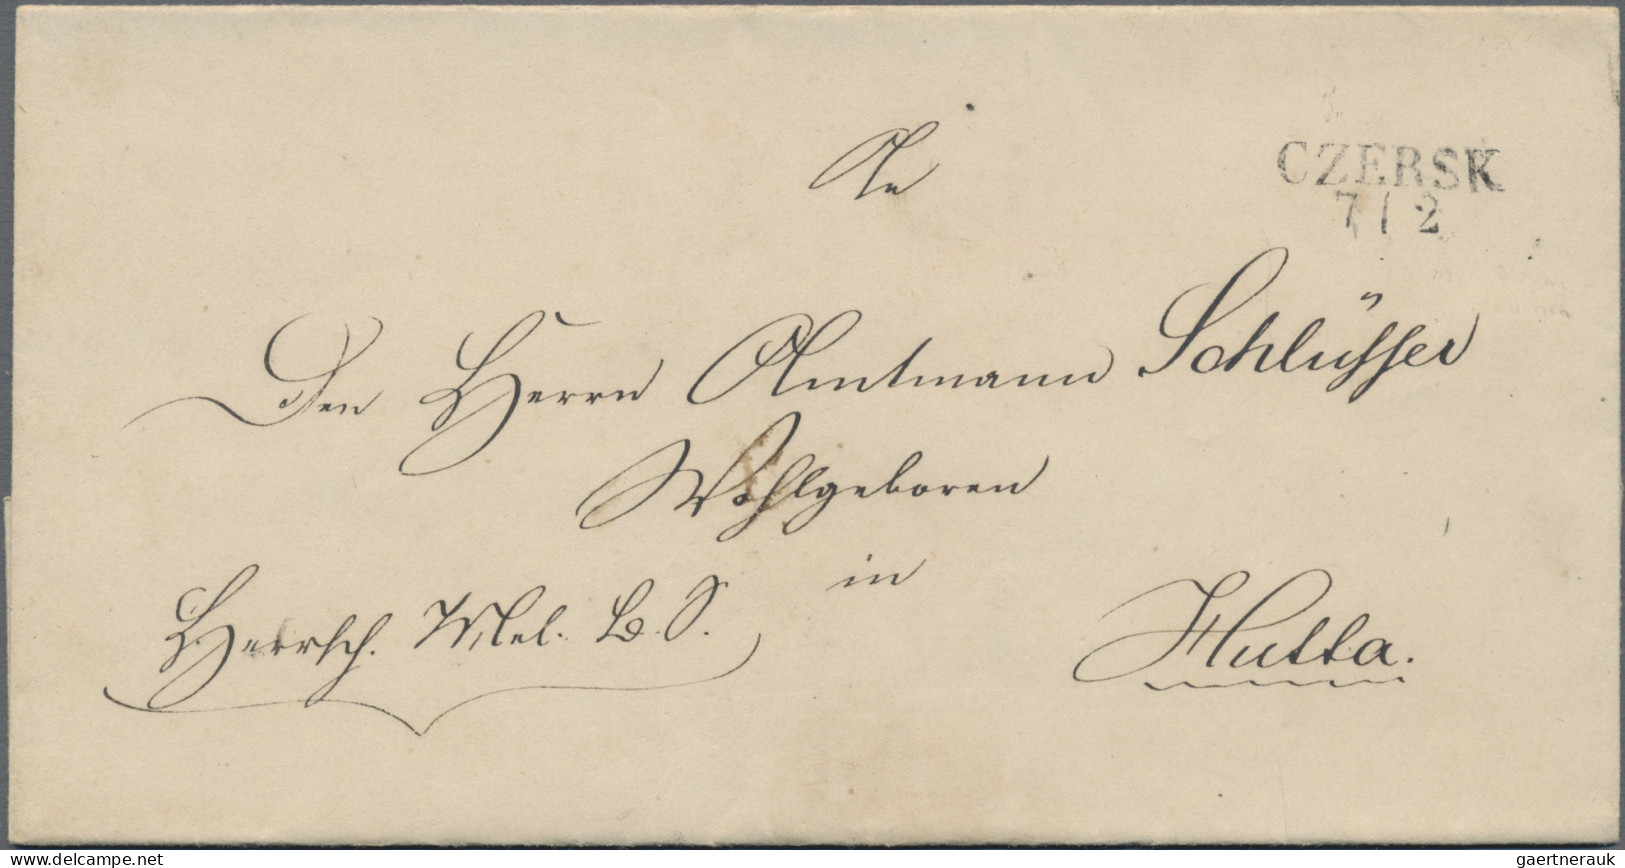 An
CZERSK
7 / 2
Den Herrn Amtmann Schlüsser
Wohlgeboren
in
Herrsch. Mel. B. S.
Hutta.
www.delcampe.net
gaertnerauk